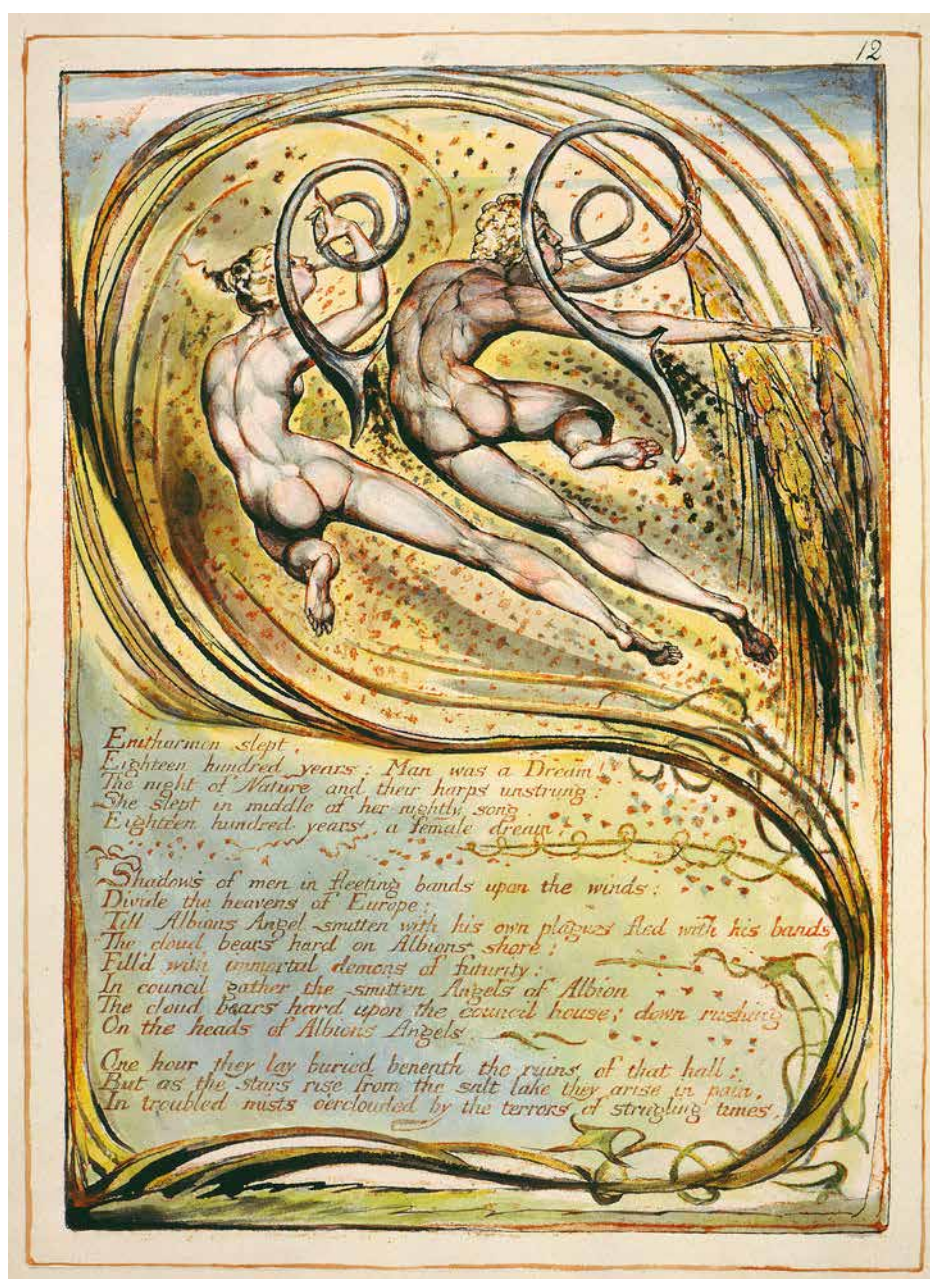 12
Enitharmon slept,
Eighteen hundred years: Man was a Dream!
The night of Nature and their harps unstrung:
She slept in middle of her nightly song,
Eighteen hundred years, a female dream.
Shadows of men in fleeting bands upon the winds:
Divide the heavens of Europe:
Till Albions Angel smitten with his own plagues fled with his bands
The cloud bears hard on Albions shore:
Fill'd with immortal demons of futurity:
In council gather the smitten Angels of Albion
The cloud bears hard upon the council house; down rushing
On the heads of Albions Angels.
One hour they lay buried beneath the ruins of that hall;
But as the stars rise from the salt lake they arise in pain,
In troubled mists o'erclouded by the terrors of strugling times.